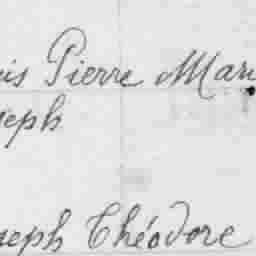 is Pierre Mari
seph
seph Théodore